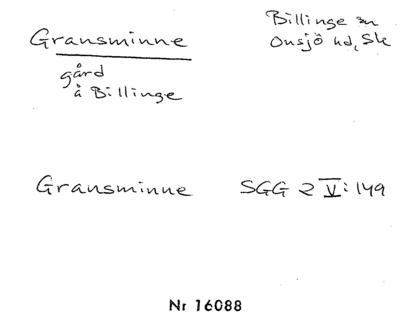 Gransminne
Billinge sn
Onsjö hd, Sk
gård
å Billinge
Gransminne SGG 2 V: 149
Nr 16088